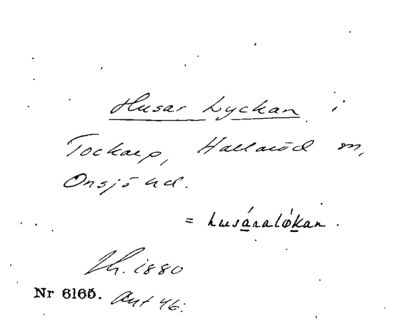 Husar Lyckan i
Tockarp, Hallaröd m,
Onsjö hd.
= husáralókan.
Th. 1880
Nr 6165. Ant 46: